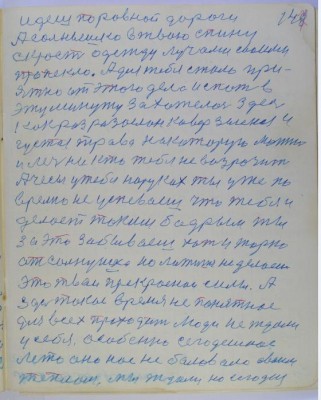 идеш по ровной дороги 149
А солнышко в твою спину
сквост одежду лучами своими
пропекло. А для тебя стало при-
ятно от этого дело и спот в
эту минуту захотелос здес
как раз разослан ковёр зыеная и
густая трава на которую можно
и леч никто тебе не возрозит
А чесы у тебя на руках ты уже по
время не успеваеш что тебя и
делает таким бодрым ты
за это забываеш хоть и жарко
от солнушка но
это твои прекрасные силы. А
здес такое время не понятное
для всех проходит люди не ждали
у себя, особенно сегоднешное
лето оно нас не баловало своим
теплом, мы ждали но сегодня